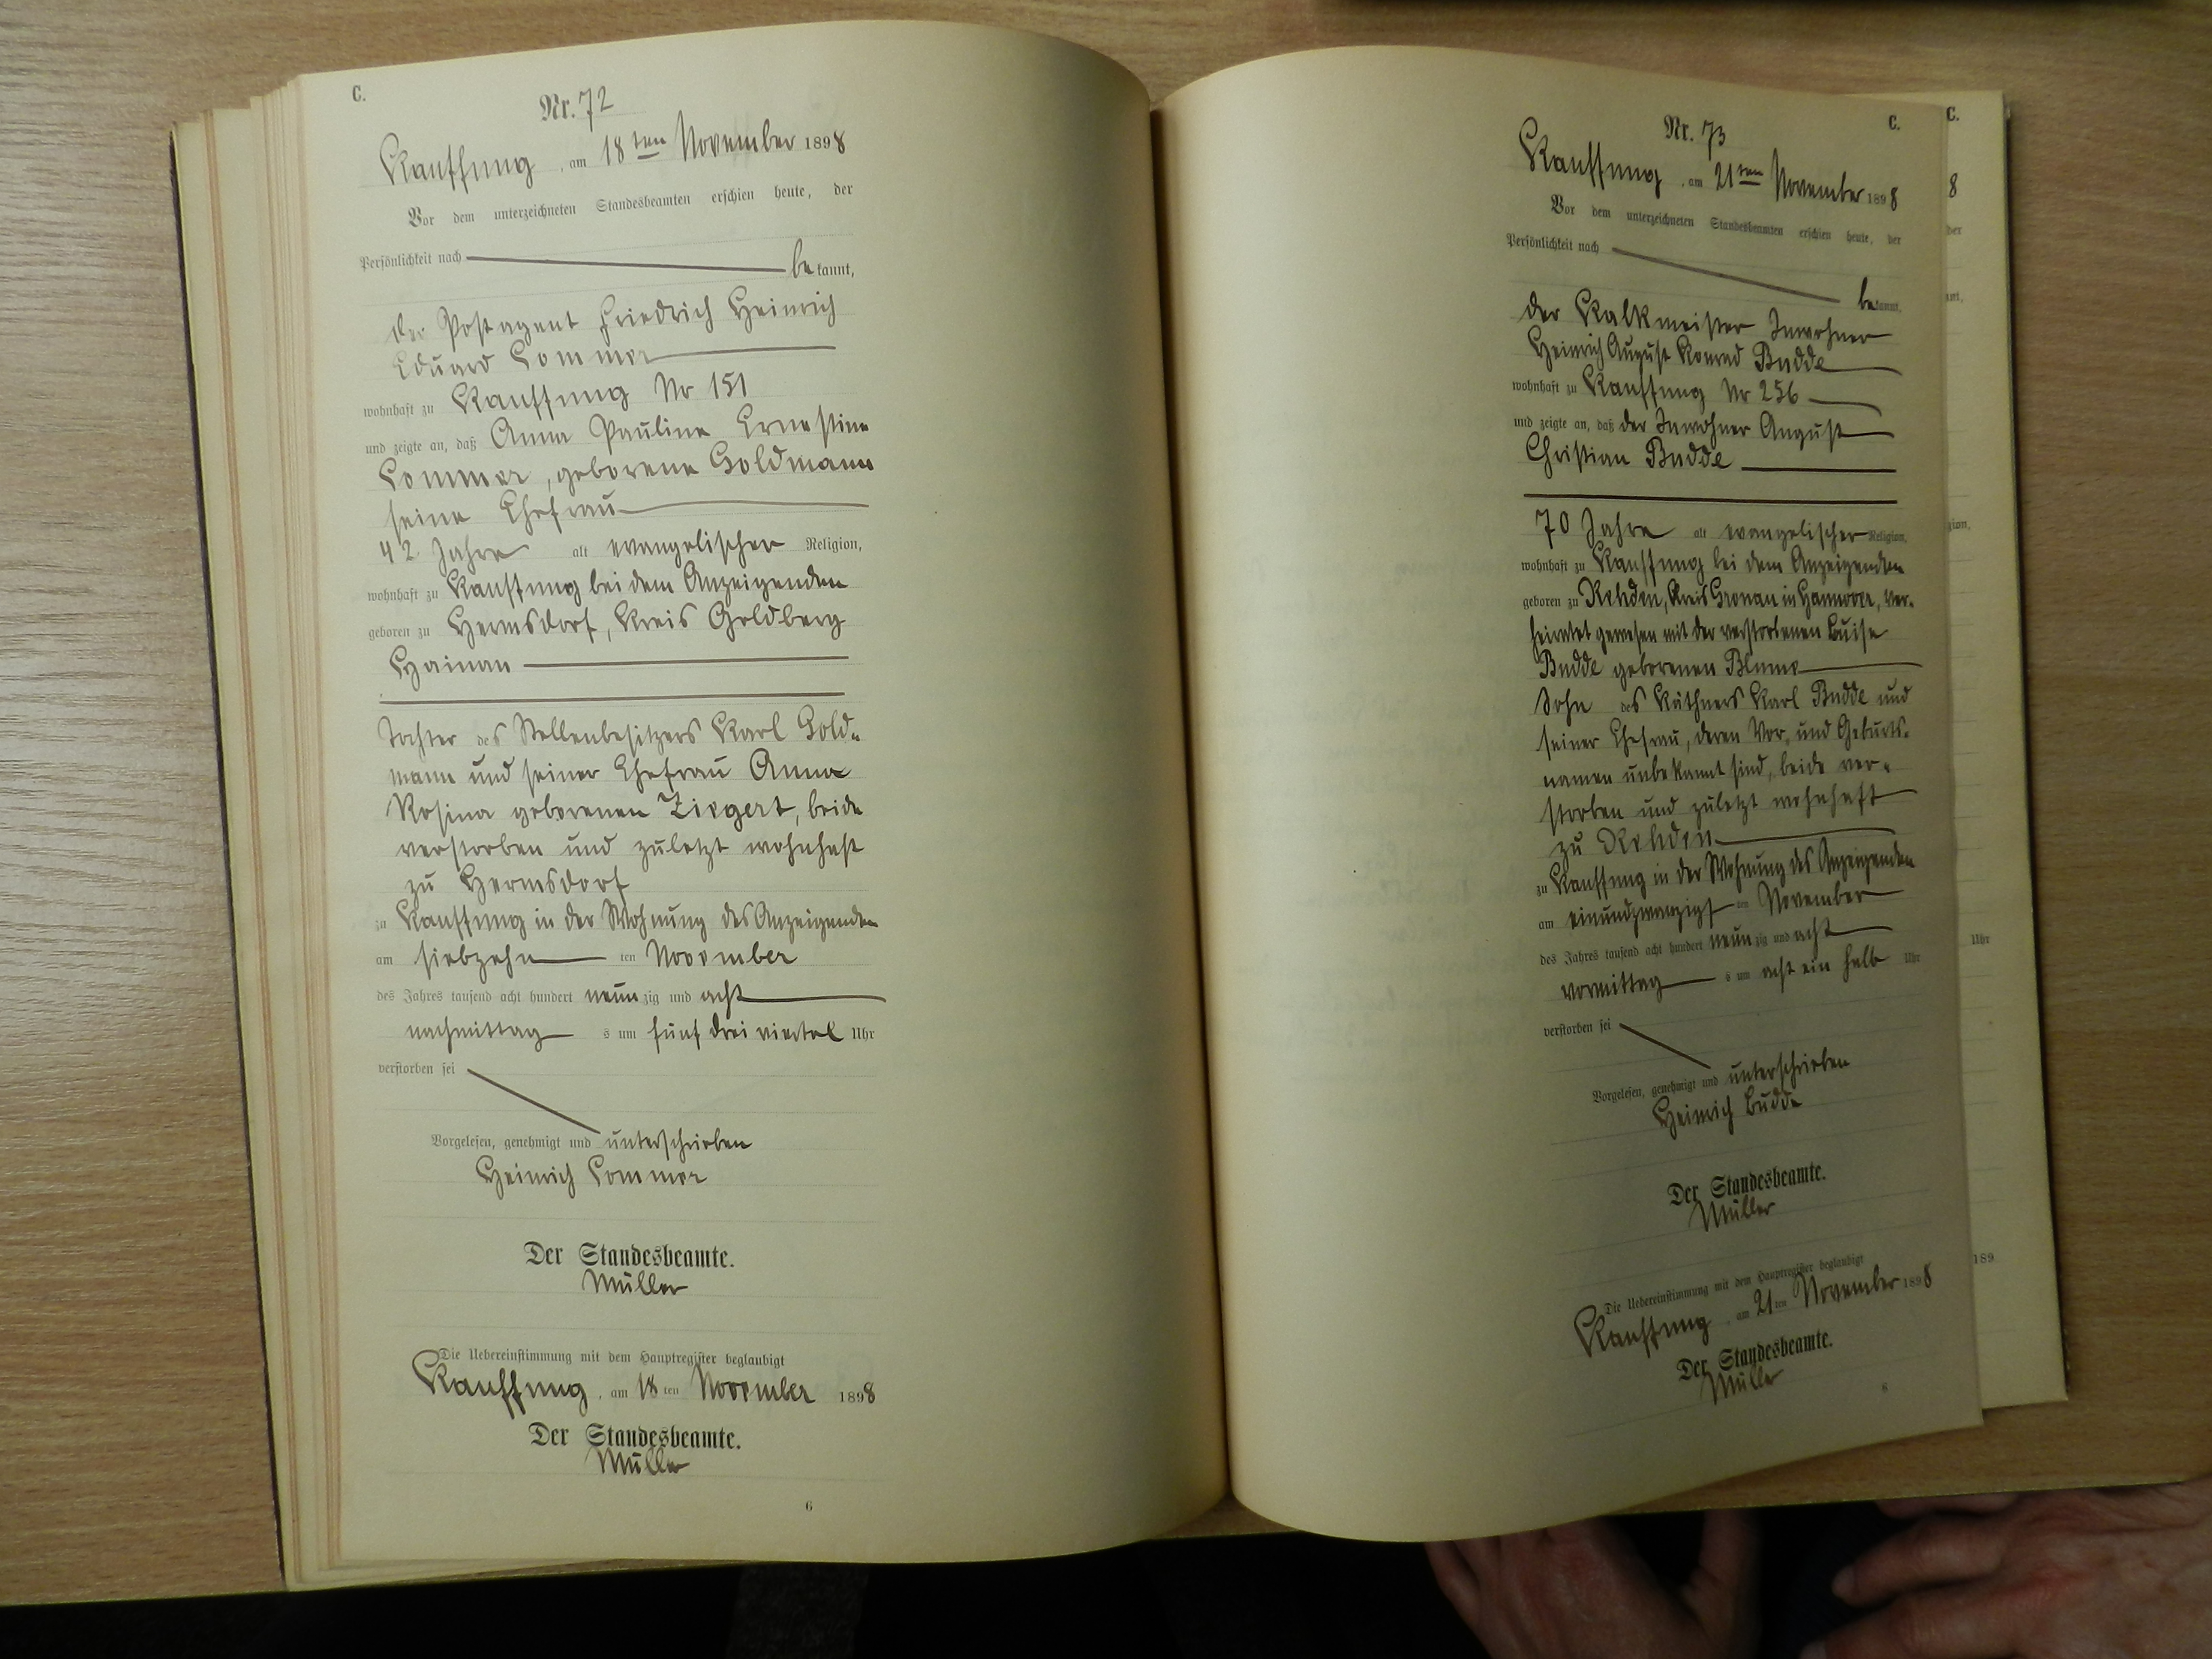 C.
Nr. 72
Kauffung, am 18ten November 1898
Vor dem unterzeichneten Standesbeamten erschien heute, der
Persönlichkeit nach bekannt,
der Postagent Friedrich Heinrich
Eduard Sommer
wohnhaft zu Kauffung Nr 151
und zeigte an, daß Anna Pauline Ernestine
Sommer, geborene Goldmann
seine Ehefrau
42 Jahre alt evangelischer Religion,
wohnhaft zu Kauffung bei dem Anzeigenden
geboren zu Hermsdorf, Kreis Goldberg
Hainau
Tochter des Stellenbesitzers Karl Gold-
mann und seiner Ehefrau Anna
Rosina geborenen Ziegert, beide
verstorben und zuletzt wohnhaft
zu Hermsdorf
zu Kauffung in der Wohnung des Anzeigenden
am siebzehnten November
des Jahres tausend acht hundert neunzig und acht
nachmittags um fünf drei viertel Uhr
verstorben sei
Vorgelesen, genehmigt und unterschrieben
Heinrich Sommer
Der Standesbeamte.
Müller
Die Uebereinstimmung mit dem Hauptregister beglaubigt
Kauffung, am 18ten November 1898
Der Standesbeamte.
Müller
6
C.
Nr. 73
Kauffung, am 21ten November 1898
Vor dem unterzeichneten Standesbeamten erschien heute, der
Persönlichkeit nach bekannt,
der Kalkmeister Inwohner
Heinrich August Konrad Budde
wohnhaft zu Kauffung Nr 256
und zeigte an, daß der Inwohner August
Christian Budde
70 Jahre alt evangelischer Religion,
wohnhaft zu Kauffung bei dem Anzeigenden
geboren zu Rehden, Kreis Gronau in Hannover, ver-
heiratet gewesen mit der verstorbenen Luise
Budde geborenen Blume
Sohn des Käthners Karl Budde und
seiner Ehefrau, deren Vor- und Geburts-
namen unbekannt sind, beide ver-
storben und zuletzt wohnhaft
zu Rehden
zu Kauffung in der Wohnung des Anzeigenden
am einundzwanzigsten November
des Jahres tausend acht hundert neunzig und acht
vormittags um acht ein halb Uhr
verstorben sei
Vorgelesen, genehmigt und unterschrieben
Heinrich Budde
Der Standesbeamte.
Müller
Die Uebereinstimmung mit dem Hauptregister beglaubigt
Kauffung, am 21ten November 1898
Der Standesbeamte.
Müller
C.
8
der
Uhr
189